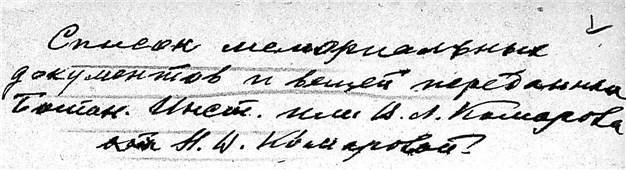 Список мемориальных
документов и вещей переданных
Ботан. Инст. им. В. Л. Комарова
от Н. В. Комаровой.